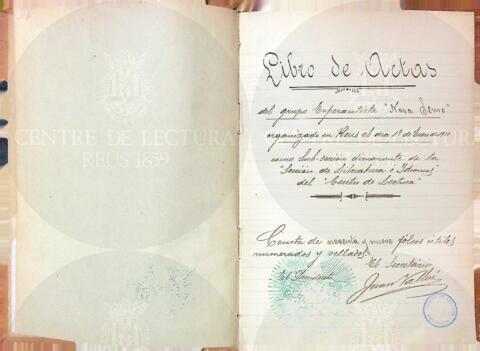 CENTRE DE LECTURA
REUS 1859
Libro de Actas
del grupo Esperantista "Nova Semo"
organizado en Reus el día 1º de Enero 1911
como Sub-sección dimanante de la
"Sección de Literatura é Idiomas
del "Centro de Lectura"
Consta de noventa y nueve fólios útiles
numerados y sellados
El Secretario
El Presidente
Juan Vallvé